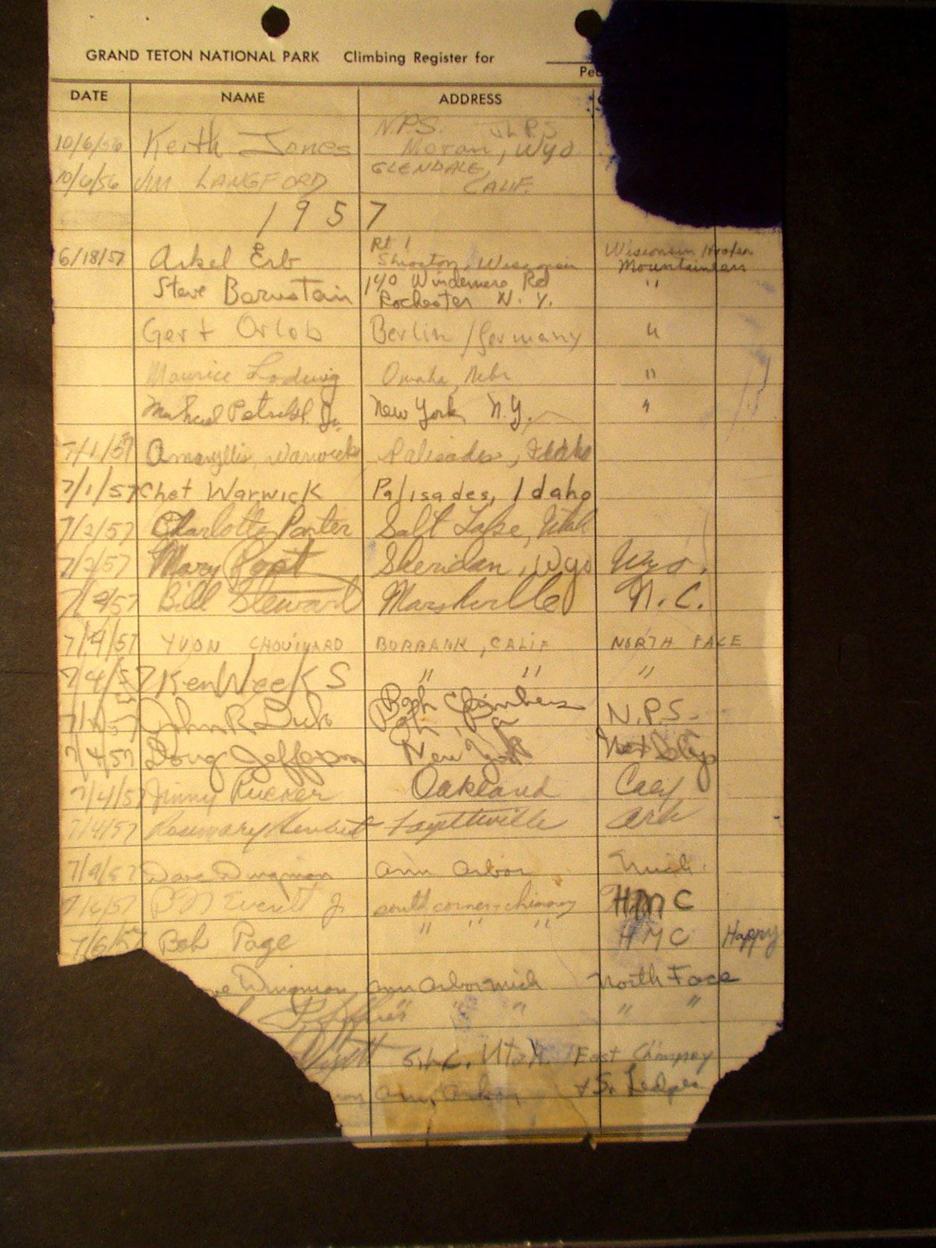 GRAND TETON NATIONAL PARK Climbing Register for
DATE NAME ADDRESS
10/6/56 Keith Jones N.P.S. Moran, Wyo
10/6/56 JIM LANGFORD GLENDALE, CALIF.
1957
6/18/57 Arkel Erb Rt 1 Shiocton, Wisconsin Wisconsin Hoofer Mountaineers
Steve Bernstein 140 Windemere Rd Rochester N.Y. "
Gert Orlob Berlin/Germany "
Maurice Omaha, Nebr "
Michael Jr. New York N.Y. "
7/1/57 Amaryllis Warwick Palisades, Idaho
7/1/57 Chet Warwick Palisades, Idaho
7/2/57 Charlotte Porter Salt Lake, Utah
7/2/57 Mary Sheridan, Wyo Wyo.
Bill Stewart Marshville N.C.
7/4/57 YVON CHOUINARD BURBANK, CALIF NORTH FACE
7/4/57 Ken Weeks " " "
John R. Pgh Climbers Pgh, Pa N.P.S.
7/4/57 Doug Jefferson New York
7/4/57 Jinny Rucker Oakland
7/4/57 Rosemary Fayetteville Ark
Dave Dingman Ann Arbor Mich.
7/6/57 Everett Jr south corner chimney HMC
Bob Page " " " HMC Happy
Dingman Ann Arbor Mich North Face
" " " " "
S.L.C. Utah. East Chimney
Ann Arbor & So. Ledges